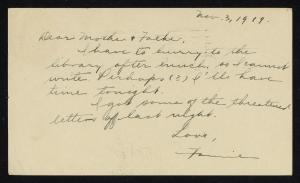 Nov. 3, 1919.
Dear Mother & Father,
I have to hurry to the
library after lunch, so I cannot
write. Perhaps (?) I'll have
time tonight.
I got some of the threatened
letters off last night.
Love,
Fannie